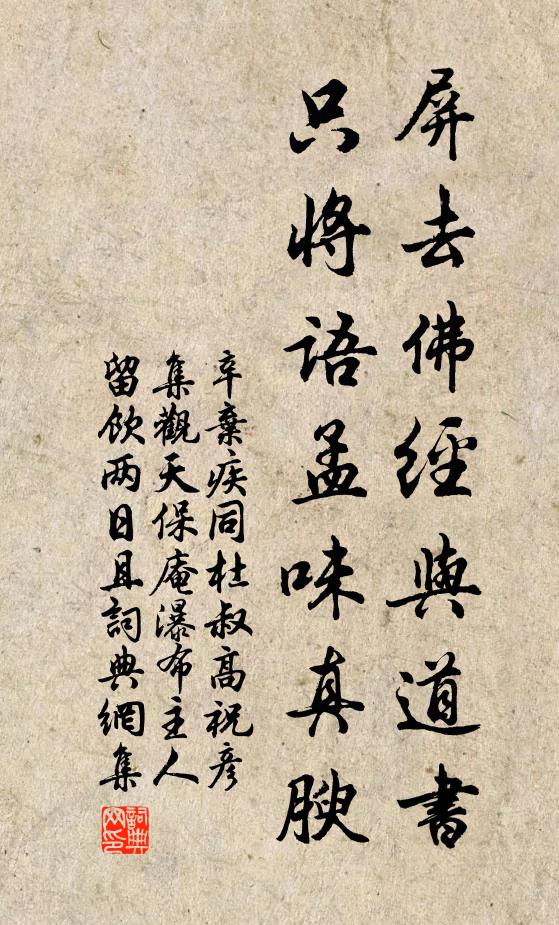 屏去佛經與道書
只將語孟味真腴
辛棄疾同杜叔高祝彥
集觀天保庵瀑布主人
留飲两日且詞典網集
詞典網印